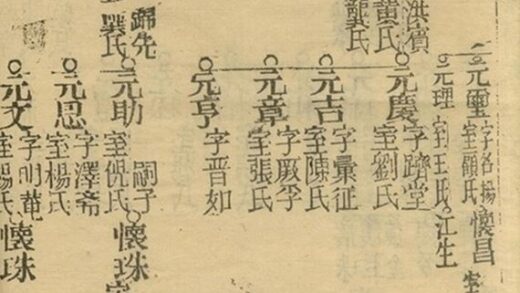 元璽 字名揚 室顧氏 懷昌
元理 室王氏 江生
洪賓
黄氏
龔氏
元慶 字躋堂 室劉氏
元吉 字彙征 室陳氏
元章 字厥孚 室張氏
元亨 字晋如
歸先
元助 室倪氏 嗣子 懷珠
元思 字澤斋 室楊氏
元文 字明菴 室楊氏 懷珠